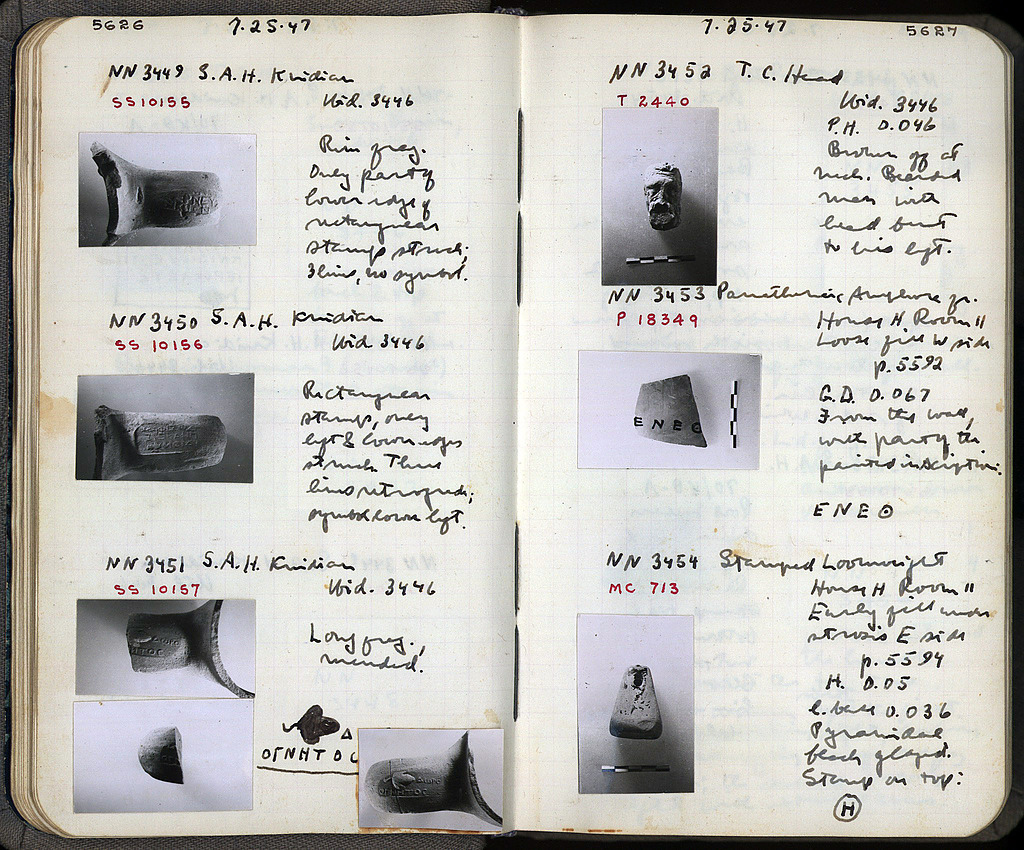 5626
7.25.47
NN 3449 S.A.H. Knidian
SS 10155
Ibid. 3446
Rim frag.
Only part of
lower edge of
rectangular
stamp struck;
3 lines, no symbol.
NN 3450 S.A.H. Knidian
SS 10156
Ibid. 3446
Rectangular
stamp, only
left & lower edges
struck. Three
lines retrograde;
symbol lower left.
NN 3451 S.A.H. Knidian
SS 10157
Ibid. 3446
Long frag.,
mended.
ΟΓΝΗΤΟΣ
7.25.47
5627
NN 3452 T.C. Head
T 2440
Ibid. 3446
P.H. 0.046
Broken off at
neck. Bearded
man with
head bent
to his left.
NN 3453 Panathenaic Amphora fr.
P 18349
House H Room 11
Loose fill W side
p. 5592
G.D. 0.067
From the wall,
with part of the
painted inscription:
ENEΘ
ENEO
NN 3454 Stamped Loomweight
MC 713
House H Room 11
Early fill under
stosis E side
p. 5594
H. 0.05
l. base 0.036
Pyramidal
black glazed.
Stamp on top:
H